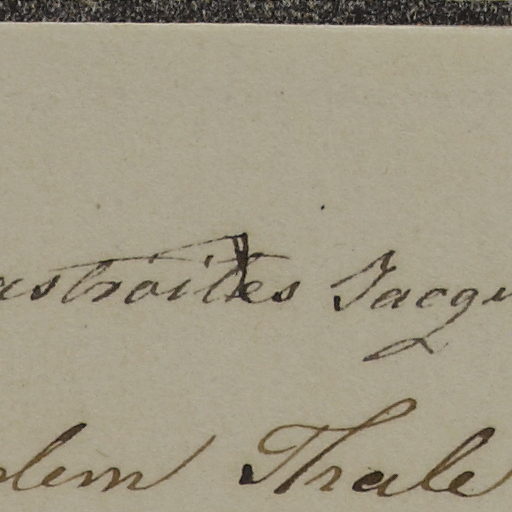 astroites Jacqu
dem Thale